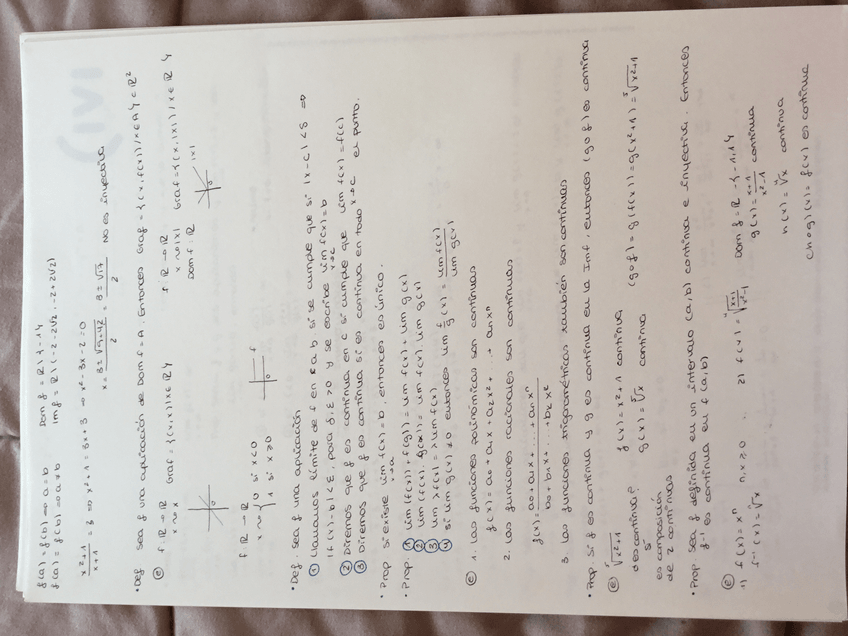 f(a) = f(b) ⇒ a = b Dom f = ℝ \ {-1}
f(a) = f(b) ⇒ a ≠ b Im f = ℝ \ (-2-2√2, -2+2√2)
(x²+1)/(x+1) = 3 ⇔ x²+1 = 3x+3 ⇒ x²-3x-2=0
x = (3 ± √(9+4·2))/2 = (3 ± √17)/2 No es inyectiva
• Def sea f una aplicación de Dom f = A. Entonces Graf = {(x, f(x)) / x ∈ A} ⊂ ℝ²
ⓔ f: ℝ → ℝ Graf = {(x,x) | x ∈ ℝ} f: ℝ → ℝ
x ↝ x x ↝ |x| Graf = {(x, |x|) / x ∈ ℝ}
Dom f: ℝ
|x|
0
0
f: ℝ → ℝ
x ↝ { 0 si x<0
1 si x≥0
f
0
• Def. sea f una aplicación
① Llamamos límite de f en c a b si se cumple que si |x-c| < δ ⇒
|f(x)-b| < ε, para δ, ε > 0 y se escribe lim x→c f(x) = b
② Diremos que f es continua en c si cumple que lim x→c f(x) = f(c)
③ Diremos que f es continua si es continua en todo el punto.
• Prop si existe lim x→a f(x) = b, entonces es único.
• Prop. ① lim (f(x) + f(g)) = lim f(x) + lim g(x)
② lim (f(x) · g(x)) = lim f(x) · lim g(x)
③ lim λf(x) = λ lim f(x)
④ si lim g(x) ≠ 0 entonces lim f/g (x) = lim f(x) / lim g(x)
ⓔ 1. Las funciones polinómicas son continuas
f(x) = a0 + a1x + a2x² + ... + anxⁿ
2. Las funciones racionales son continuas
f(x) = (a0 + a1x + ... + anxⁿ) / (b0 + b1x + ... + bkxᵏ)
3. Las funciones trigonométricas también son continuas
• Prop. Si f es continua y g es continua en la Im f, entonces (g o f) es continua
ⓔ ⁵√(x²+1) f(x) = x²+1 continua (g o f) = g(f(x)) = g(x²+1) = ⁵√(x²+1)
d es continua? g(x) = ⁵√x continua
si
es composición
de 2 continuas
• Prop sea f definida en un intervalo (a,b) continua e inyectiva. Entonces
f⁻¹ es continua en f(a,b)
ⓔ
1) f(x) = xⁿ n, x ≥ 0 2) f(x) = ⁴√((x+1)/(x²-1)) Dom f = ℝ - {-1, 1}
f⁻¹(x) = ⁿ√x g(x) = (x+1)/(x²-1) continua
h(x) = ⁴√x continua
(h o g)(x) = f(x) es continua